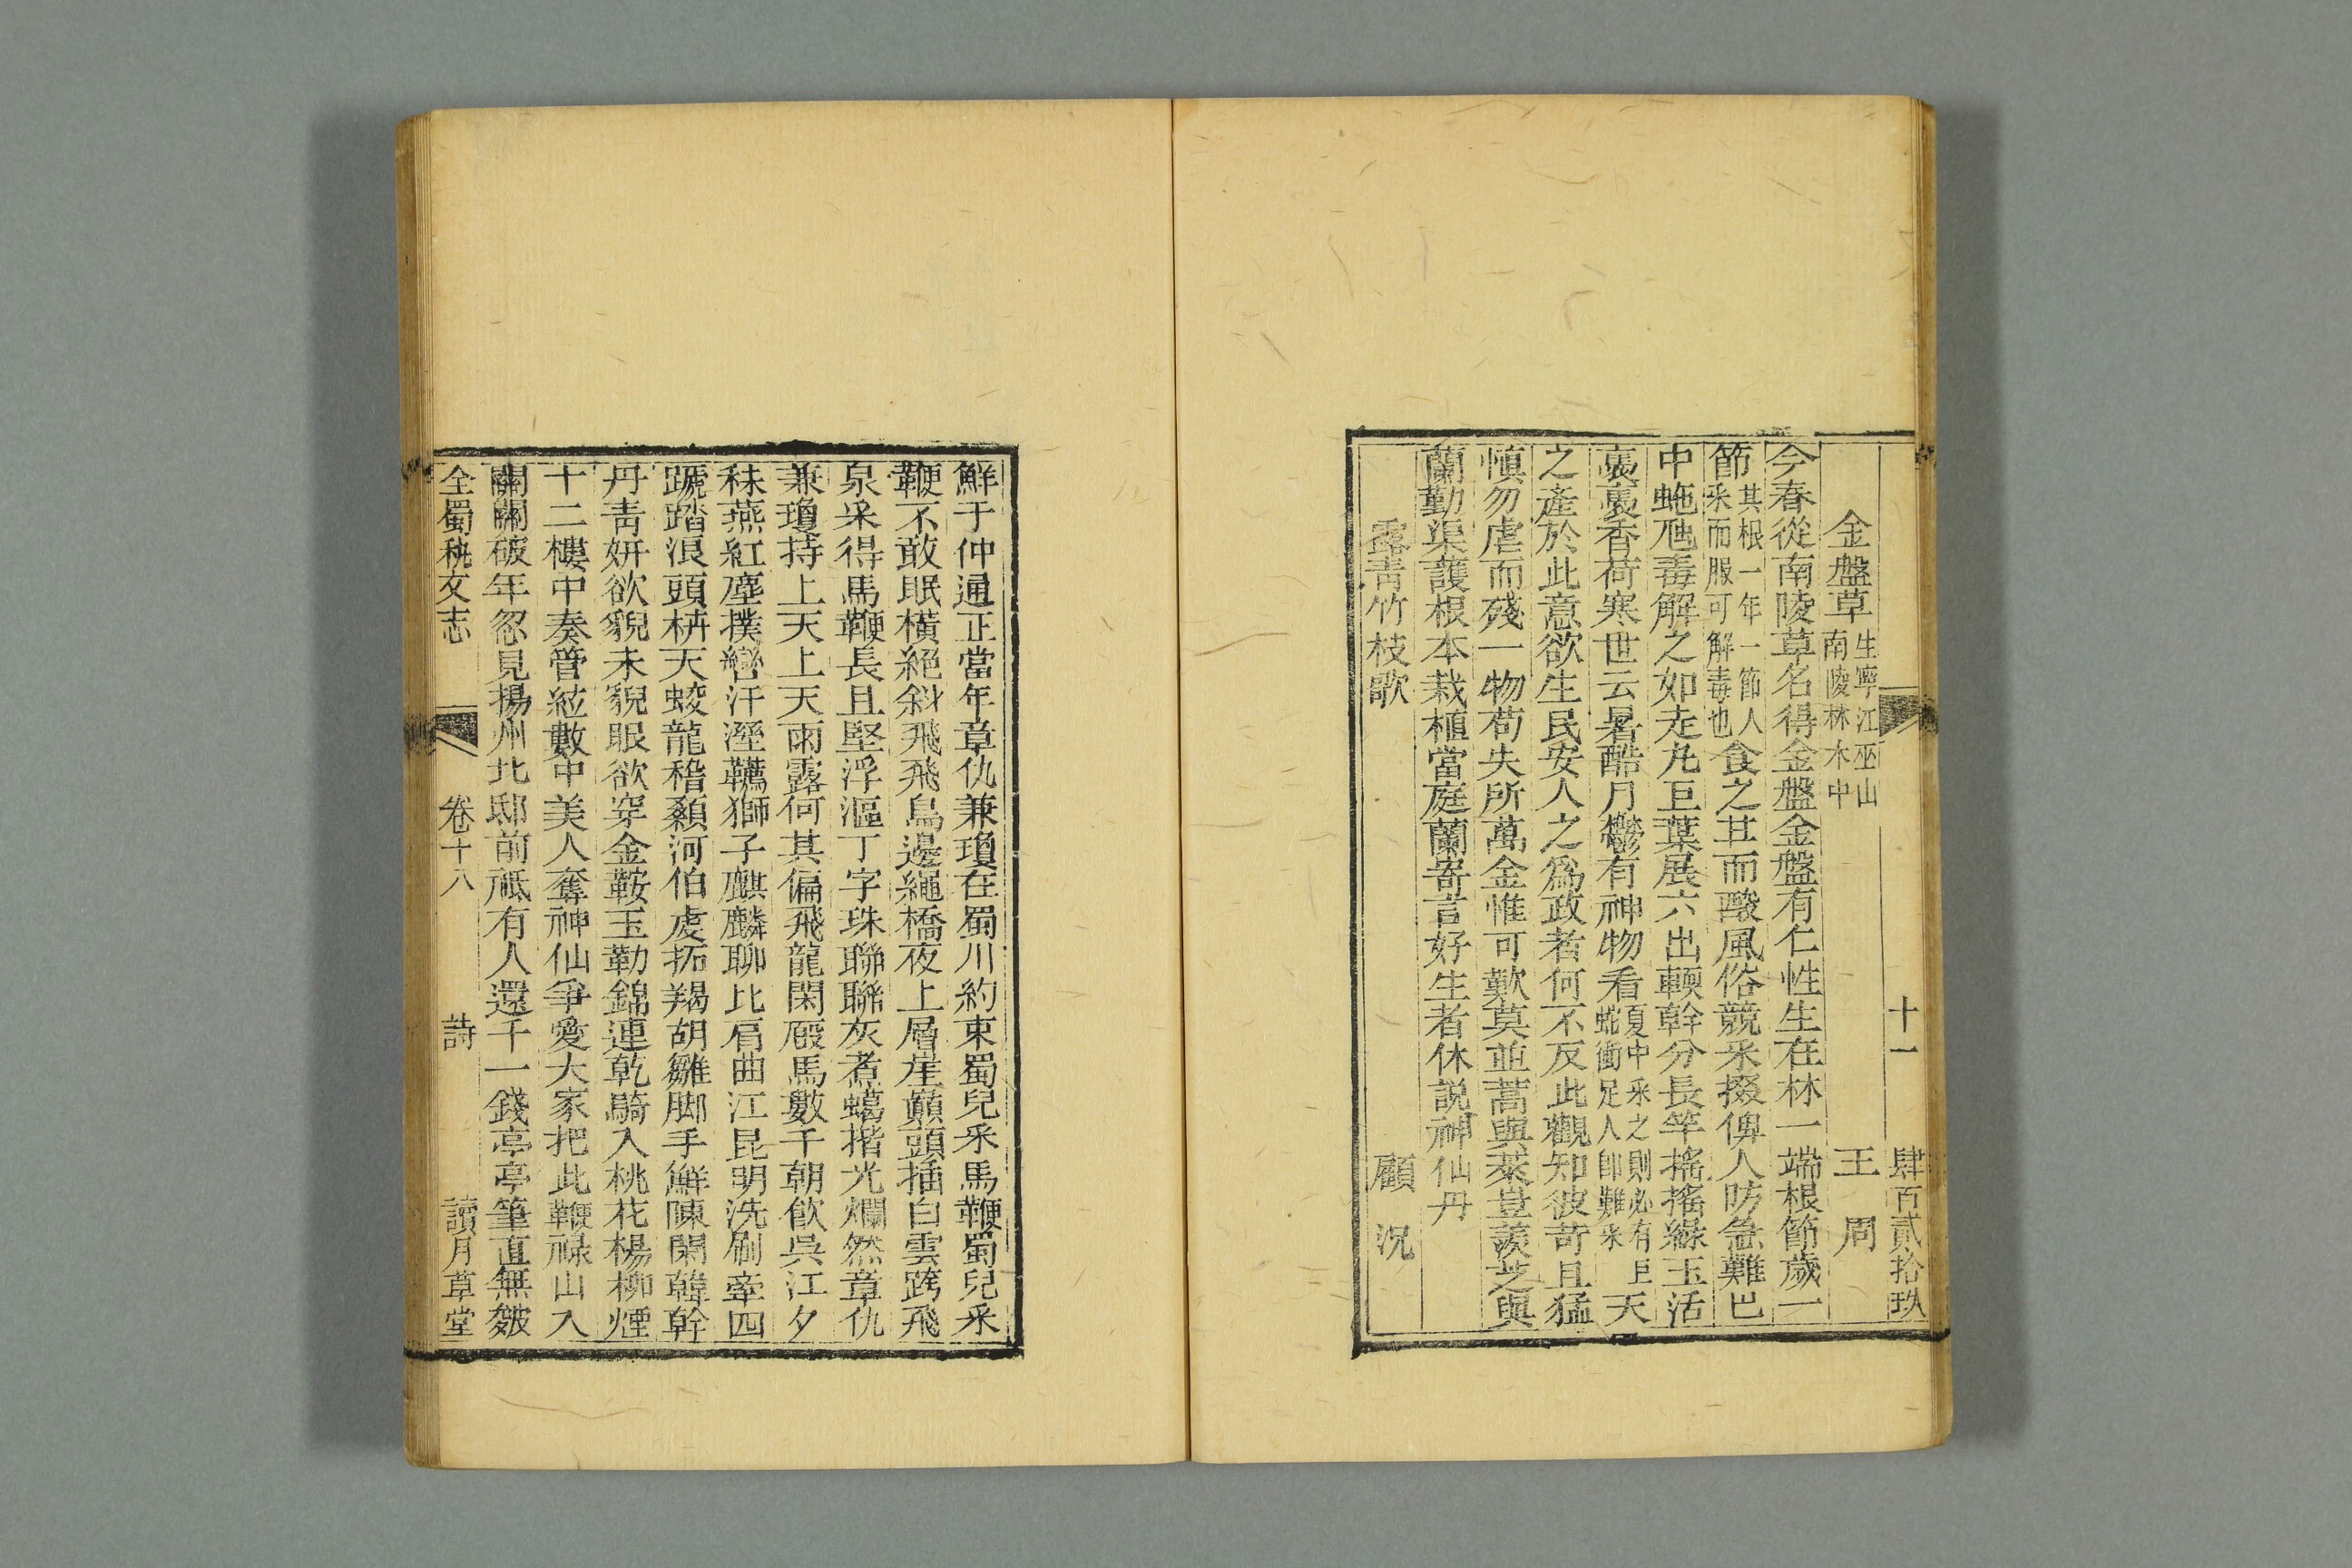 十一　肆百貳拾玖
金盤草生寧江巫山南陵林木中　王周
今春從南陵草名得金盤金盤有仁性生在林一端根節歲一
節其根一年一節人采而服可解毒也食之甘而酸風俗競采掇俾人防急難巴
中虵虺毒解之如走丸巨葉展六出軟幹分長竿搖搖綠玉活
裊裊香荷寒世云暑酷月鬱有神物看夏中采之則必有巨蛇衝足人卽難采天
之產於此意欲生民安人之爲政者何不反此觀知彼苛且猛
慎勿虐而殘一物苟失所萬金惟可歎莫並蒿與萊豈羨芝與
蘭勤渠護根本栽植當庭蘭寄言好生者休説神仙丹
露青竹枝歌　顧況
鮮于仲通正當年章仇兼瓊在蜀川約束蜀兒采馬鞭蜀兒采
鞭不敢眠橫絕斜飛飛鳥邊繩橋夜上層崖巔頭插白雲跨飛
泉采得馬鞭長且堅浮漚丁字珠聯聯灰煮蠟揩光爛然章仇
兼瓊持上天上天雨露何其偏飛龍閑廄馬數千朝飲吳江夕
秣燕紅塵撲轡汗溼韉獅子麒麟聊比肩曲江昆明洗刷牽四
蹏踏浪頭枿天蛟龍稽顙河伯虔拓羯胡雛脚手鮮陳閎韓幹
丹青妍欲貌未貌眼欲穿金鞍玉勒錦連乾騎入桃花楊柳煙
十二樓中奏管絃數中美人奪神仙爭愛大家把此鞭祿山入
關關破年忽見揚州北邸前祗有人還千一錢亭亭筆直無皴
全蜀秇文志　卷十八　詩　讀月草堂